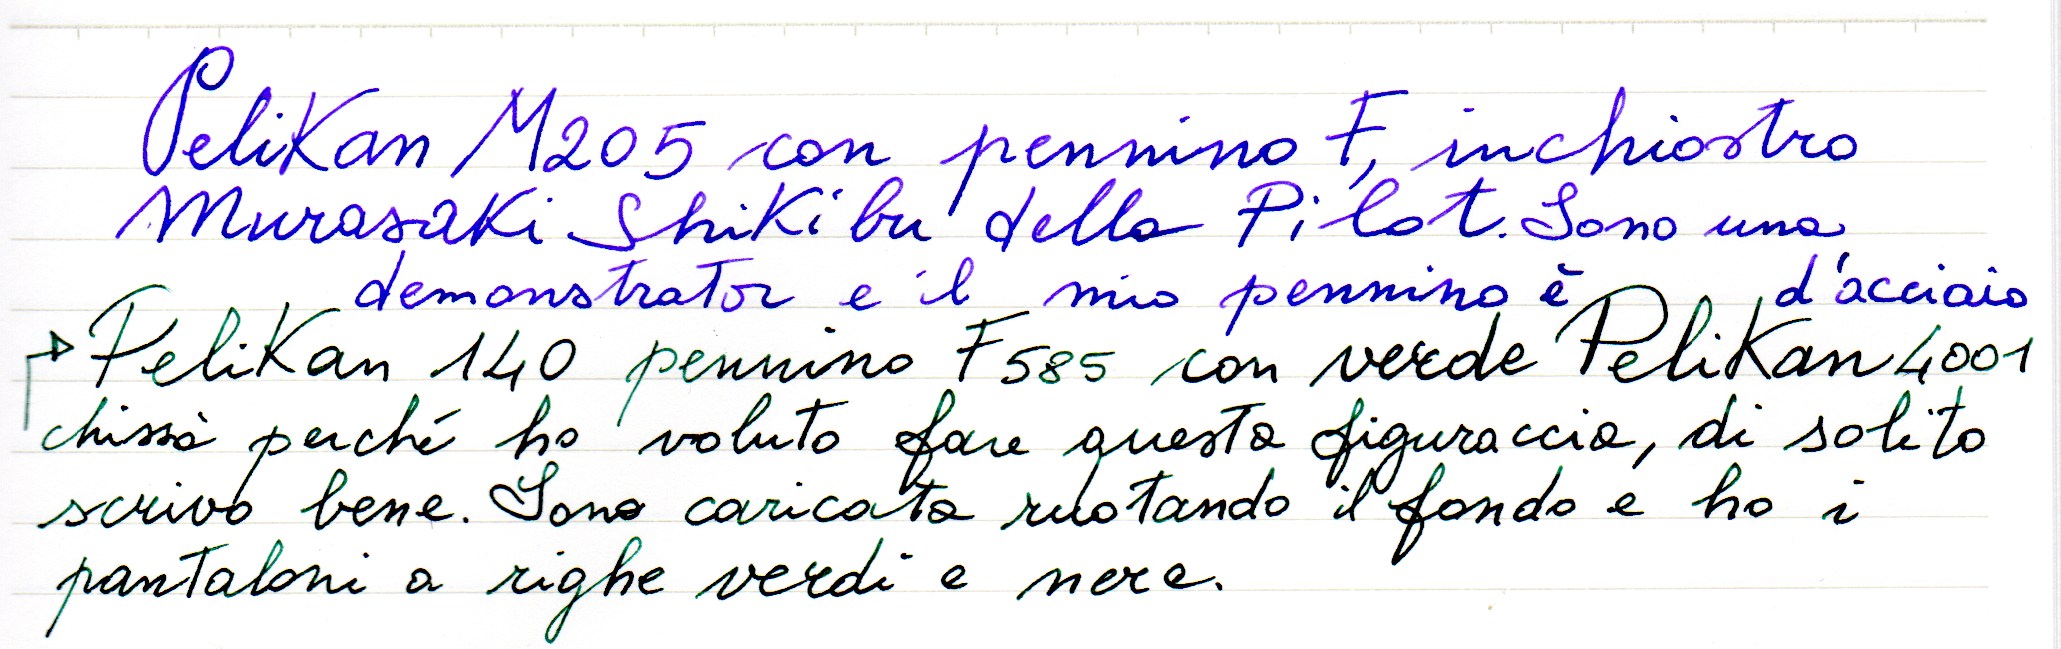 Pelikan M205 con pennino F, inchiostro
Murasaki Shikibu della Pilot. Sono una
demonstrator e il mio pennino è d'acciaio
Pelikan 140 pennino F 585 con verde Pelikan 4001
chissà perché ho voluto fare questa figuraccia, di solito
scrivo bene. Sono caricata ruotando il fondo e ho i
pantaloni a righe verdi e nere.